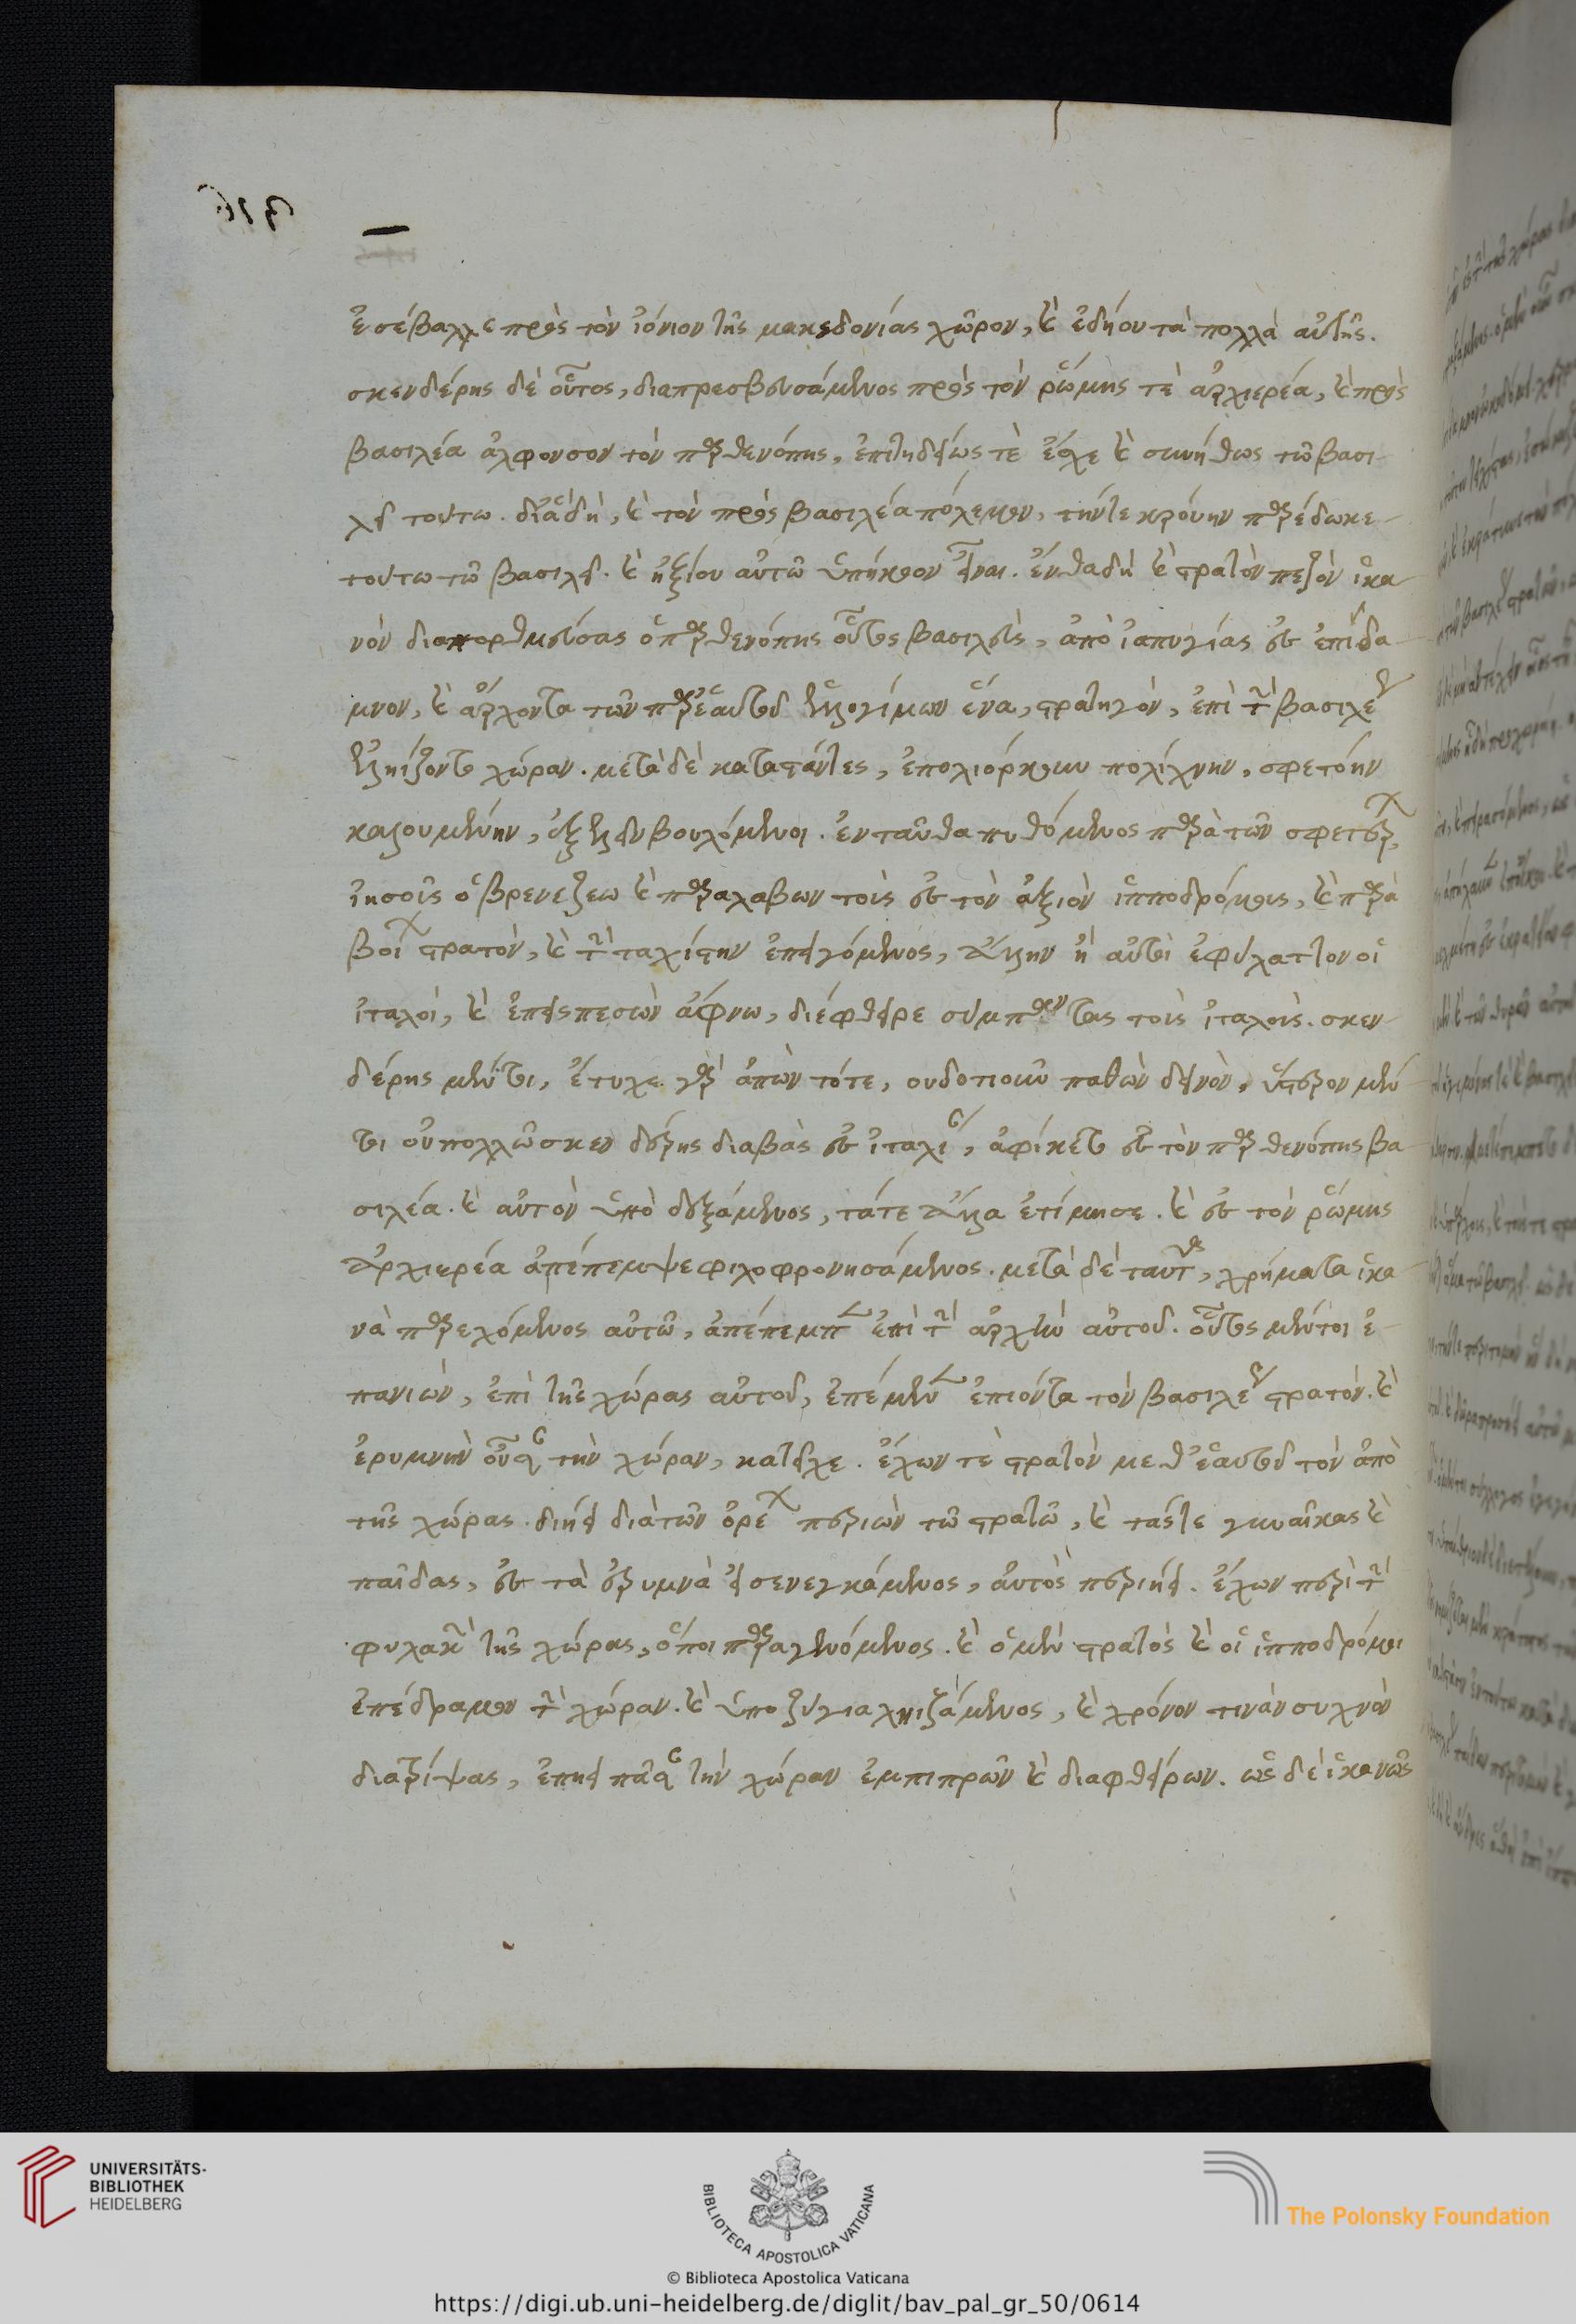 316
ἐσέβαλλε πρὸς τὸν ἰόνιον τῆς μακεδονίας χῶρον, καὶ ἐδῄον τὰ πολλὰ αὐτῆς.
σκενδέρης δὲ οὗτος, διαπρεσβευσάμενος πρὸς τὸν ῥώμης τὲ ἀρχιερέα, καὶ πρὸς
βασιλέα ἀλφονσον τὸν παρθενόπης, ἐπιτηδείως τὲ ἔσχε καὶ συνήθως τῶ βασι
λεῖ τούτω. διὰ δὴ, καὶ τὸν πρὸς βασιλέα πόλεμον, τήντε κρόυην παρέδωκε
τούτω τῶ βασιλεῖ. καὶ ἠξίου αὐτῶ ὑπήκοον εἶναι. ἔνθα δὴ καὶ στρατὸν πεζὸν ἱκα
νὸν διαπορθμεύσας ὁ παρθενόπης οὗτος βασιλεὺς, ἀπὸ ἰαπυγίας ἐς ἐπίδα
μνον, καὶ ἄρχοντα τῶν παρ' ἑαυτοῦ ἐλλογίμων ἕνα, στρατηγὸν, ἐπὶ τὴν βασιλέως
ἐληίζοντο χώραν. μετὰ δὲ καταστάντες, ἐπολιόρκουν πολίχνην, σφετίην
καλουμένην, ἐξελεῖν βουλόμενοι. ἐνταῦθα πυθόμενος παρὰ τῶν σφετέρων,
ἰησοῦς ὁ βρενέζεω καὶ παραλαβων τοὺς ἐς τὸν ἀξιὸν ἱπποδρόμους, καὶ παρὰ
βοιῶν στρατὸν, καὶ τὴν ταχίστην ἐπειγόμενος, ἄλλην ἢ αὐτοὶ ἐφύλαττον οἱ
ἰταλοί, καὶ ἐπεισπεσὼν ἄφνω, διέφθειρε σύμπαντας τοὺς ἰταλούς. σκεν
δέρης μέντοι, ἔτυχε γὰρ ἀπὼν τότε, ουδοτιοῦν παθὼν δεινὸν, ὕστερον μέν
τοι οὐ πολλῶ σκενδέρης διαβὰς ἐς ἰταλίαν, ἀφίκετο ἐς τὸν παρθενόπης βα
σιλέα. καὶ αὐτὸν ὑποδεξάμενος, τάτε ἄλλα ἐτίμησε. καὶ ἐς τὸν ῥώμης
ἀρχιερέα ἀπέπεμψε φιλοφρονησάμενος. μετὰ δὲ ταῦτα, χρήματα ἱκα
νὰ παρεχόμενος αὐτῶ, ἀπέπεμπεν ἐπὶ τὴν ἀρχὴν αὐτοῦ. οὗτος μέντοι ἐ
πανιὼν, ἐπὶ τῆς χώρας αὐτοῦ, ἐπέμενεν ἐπιόντα τὸν βασιλέως στρατόν. καὶ
ἐρυμνὴν οὖσαν τὴν χώραν, κατεῖχε. ἔχων τὲ στρατὸν μεθ' ἑαυτοῦ τὸν ἀπὸ
τῆς χώρας. διήει διὰ τῶν ὀρέων περιιὼν τῶ στρατῶ, καὶ τάς τε γυναῖκας καὶ
παῖδας, ἐς τὰ ἐρυμνὰ εἰσενεγκάμενος, αὐτὸς περιῄει. ἔχων περὶ τὴν
φυλακὴν τῆς χώρας, ὅποι παραγενόμενος. καὶ ὁ μὲν στρατὸς καὶ οἱ ἱπποδρόμοι
ἐπέδραμον τὴν χώραν. καὶ ὑποζύγια ληισάμενος, καὶ χρόνον τινὰν συχνὸν
διατρίψας, ἐπῄει πᾶσαν τὴν χώραν ἐμπιπρῶν καὶ διαφθείρων. ὡς δὲ ἱκανῶς
UNIVERSITÄTS-
BIBLIOTHEK
HEIDELBERG
BIBLIOTECA APOSTOLICA VATICANA
The Polonsky Foundation
© Biblioteca Apostolica Vaticana
https://digi.ub.uni-heidelberg.de/diglit/bav_pal_gr_50/0614